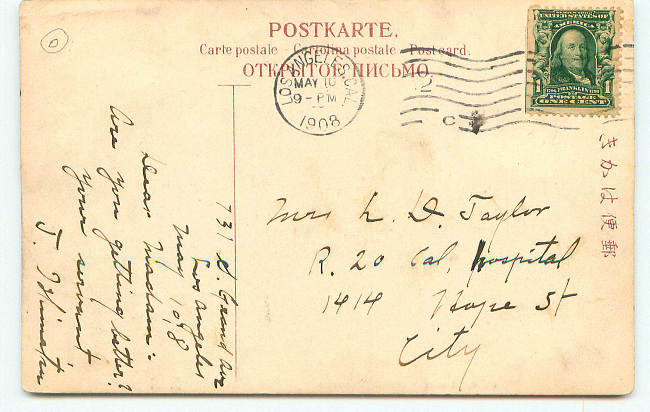 POSTKARTE.
Carte postale Cartolina postale Postcard.
ОТКРЫТОЕ ПИСЬМО.
LOS ANGELES, CAL.
MAY 10
9 - PM
1908
2
C
UNITED STATES OF
AMERICA
1 1
FRANKLIN
POSTAGE
ONE CENT
きかは便郵
731 S. Grand Ave
Los Angeles
May 10/8
Dear Madam:
Are you getting better?
Your servant
J.
Mrs L. D. Taylor
R. 20 Cal. Hospital
1414 Hope St
City